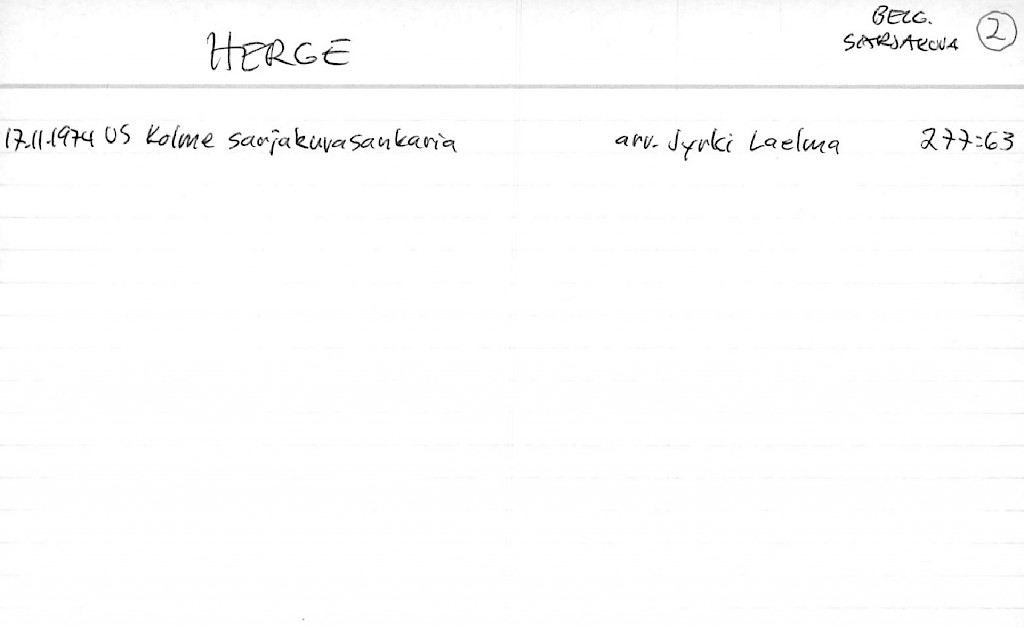 HERGE
BELG.
SARJAKUVA
2
17.11.1974 US Kolme sarjakuvasankaria arv. Jyrki Laelma 277:63